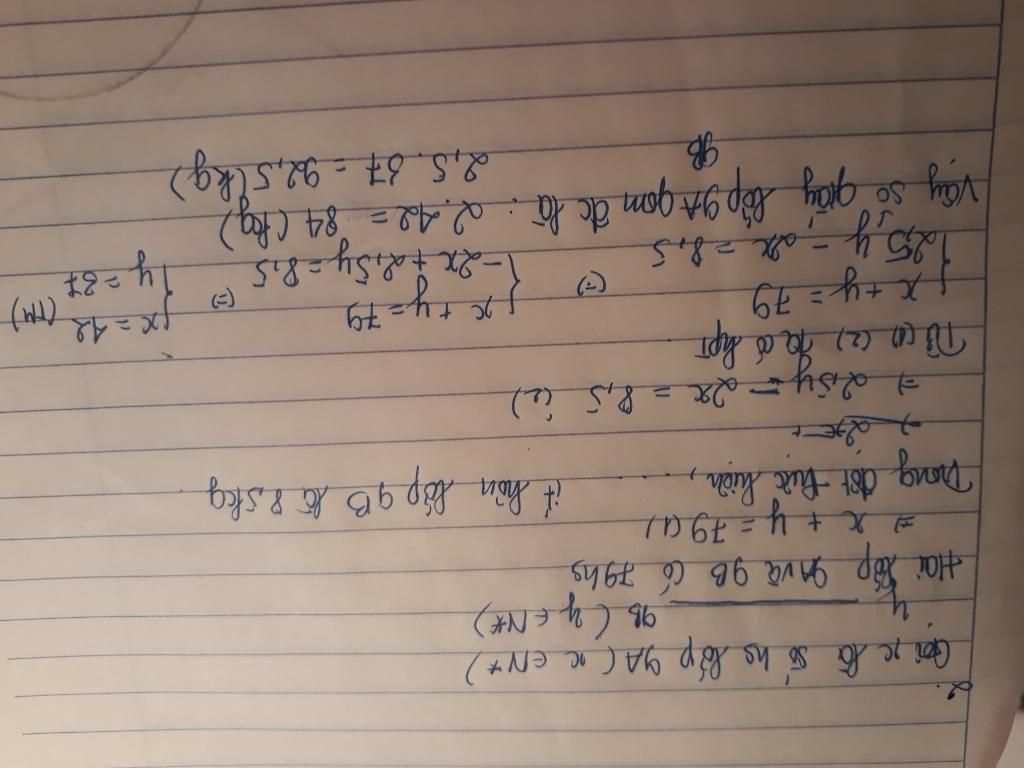 2.
Gọi x là số hs lớp 9A (x ∈ N*)
y ——— 9B (y ∈ N*)
Hai lớp 9A và 9B có 79 hs
=> x + y = 79 (1)
Trong đợt thực hiện, ..... ít hơn lớp 9B là 8,5kg
=> 2x
=> 2,5y - 2x = 8,5 (2)
Từ (1) (2) ta có hpt
{ x + y = 79 (=) { x + y = 79 (=) { x = 42 (TM)
{ 2,5y - 2x = 8,5 { -2x + 2,5y = 8,5 { y = 37
Vậy số giấy lớp 9A gom đc là : 2.42 = 84 (kg)
9B 2,5.37 = 92,5 (kg)